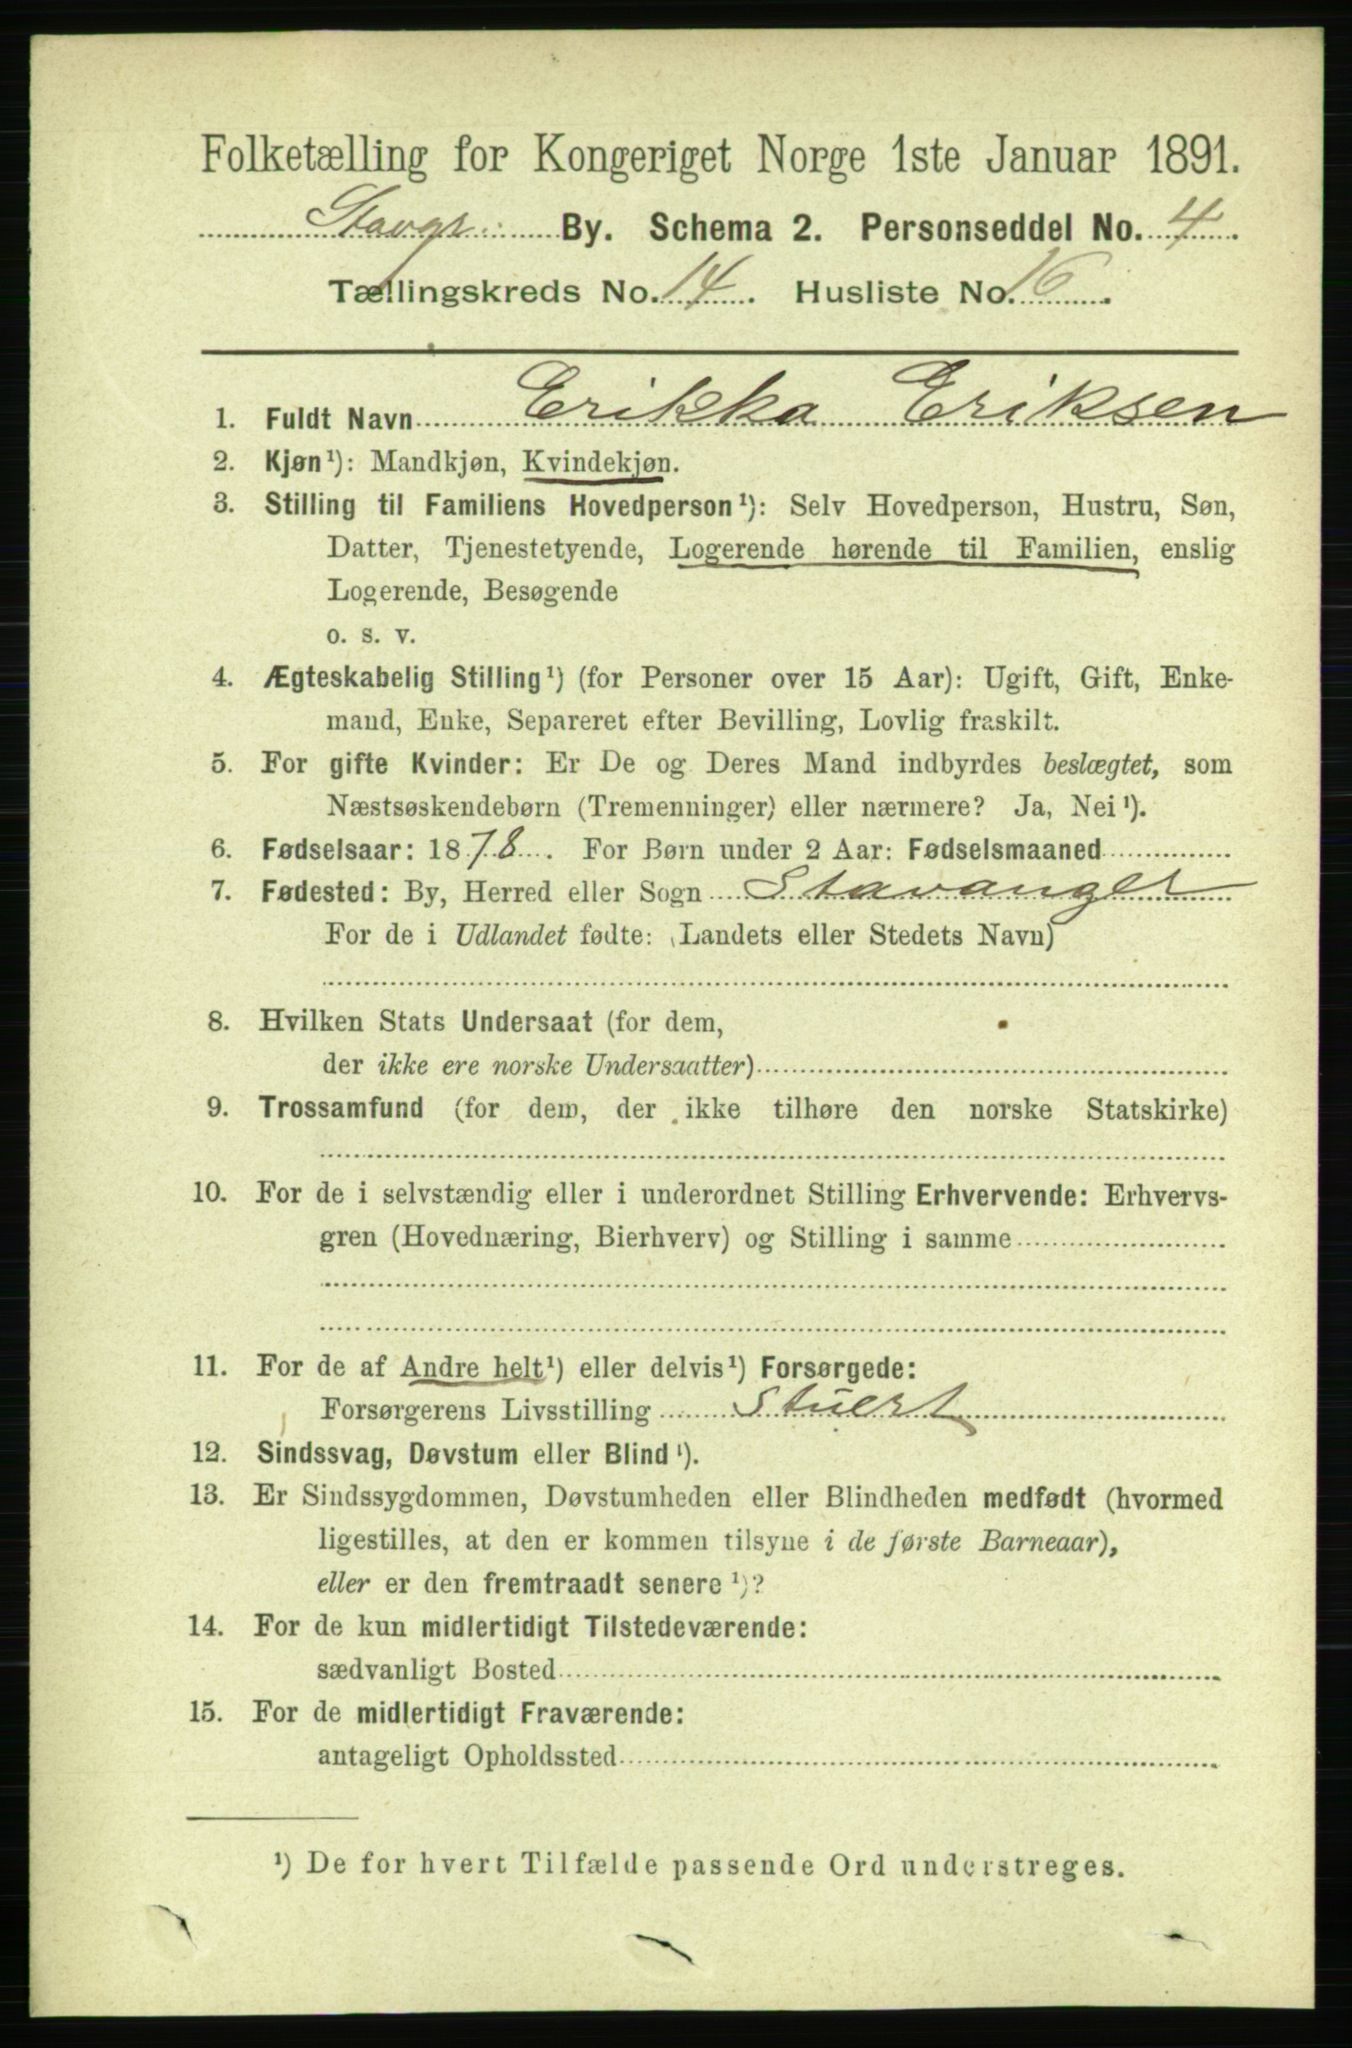 Folketælling for Kongeriget Norge 1ste Januar 1891.
Stavgr By. Schema 2. Personseddel No. 4
Tællingskreds No. 14. Husliste No. 16.
1. Fuldt Navn Erikka Eriksen
2. Kjøn¹): Mandkjøn, Kvindekjøn.
3. Stilling til Familiens Hovedperson¹): Selv Hovedperson, Hustru, Søn,
Datter, Tjenestetyende, Logerende hørende til Familien, enslig
Logerende, Besøgende
o. s. v.
4. Ægteskabelig Stilling¹) (for Personer over 15 Aar): Ugift, Gift, Enke-
mand, Enke, Separeret efter Bevilling, Lovlig fraskilt.
5. For gifte Kvinder: Er De og Deres Mand indbyrdes beslægtet, som
Næstsøskendebørn (Tremenninger) eller nærmere? Ja, Nei¹).
6. Fødselsaar: 1878. For Børn under 2 Aar: Fødselsmaaned
7. Fødested: By, Herred eller Sogn Stavanger
For de i Udlandet fødte: (Landets eller Stedets Navn)
8. Hvilken Stats Undersaat (for dem,
der ikke ere norske Undersaatter)
9. Trossamfund (for dem, der ikke tilhøre den norske Statskirke)
10. For de i selvstændig eller i underordnet Stilling Erhvervende: Erhvervs-
gren (Hovednæring, Bierhverv) og Stilling i samme
11. For de af Andre helt¹) eller delvis¹) Forsørgede:
Forsørgerens Livsstilling Stuert
12. Sindssvag, Døvstum eller Blind¹).
13. Er Sindssygdommen, Døvstumheden eller Blindheden medfødt (hvormed
ligestilles, at den er kommen tilsyne i de første Barneaar),
eller er den fremtraadt senere¹)?
14. For de kun midlertidigt Tilstedeværende:
sædvanligt Bosted
15. For de midlertidigt Fraværende:
antageligt Opholdssted
¹) De for hvert Tilfælde passende Ord understreges.